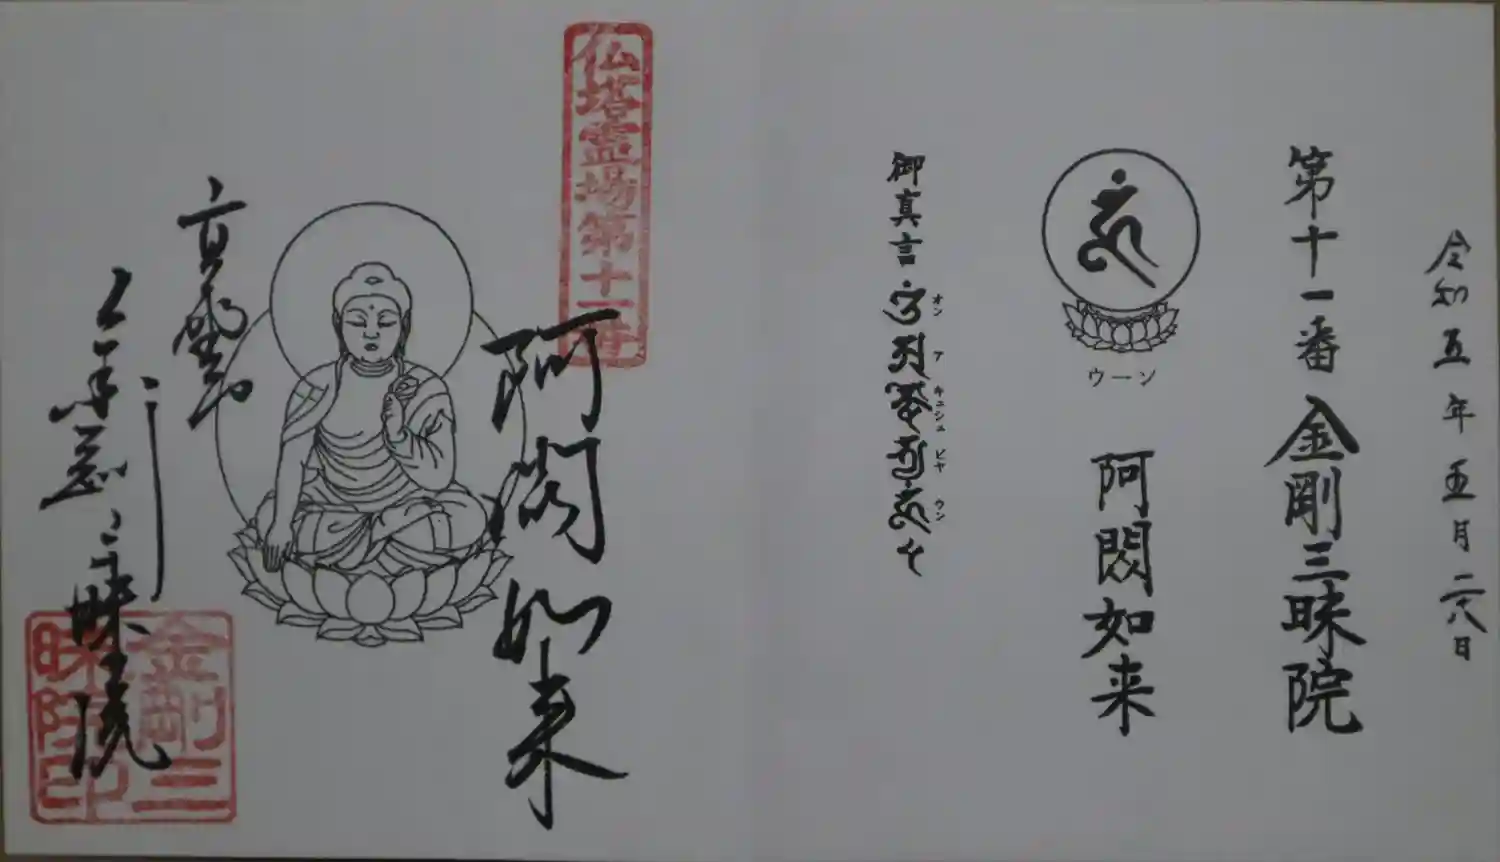 令和五年五月二八日
第十一番 金剛三昧院
ウーン
阿閦如来
御真言
オン ア キュシュ ビヤ ウン
仏塔霊場第十一番
阿閦如来
高野山
金剛三昧院
金剛三昧院印